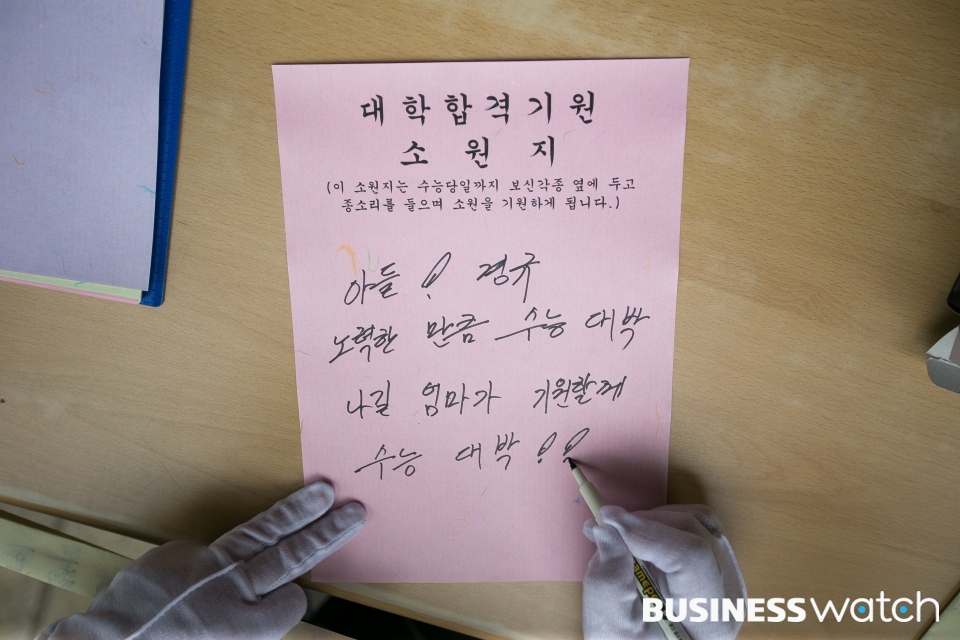 대학합격기원
소원지
(이 소원지는 수능당일까지 보신각종 옆에 두고
종소리를 들으며 소원을 기원하게 됩니다.)
아들! 경규
노력한 만큼 수능 대박
나길 엄마가 기원할께
수능 대박!!
BUSINESS watch